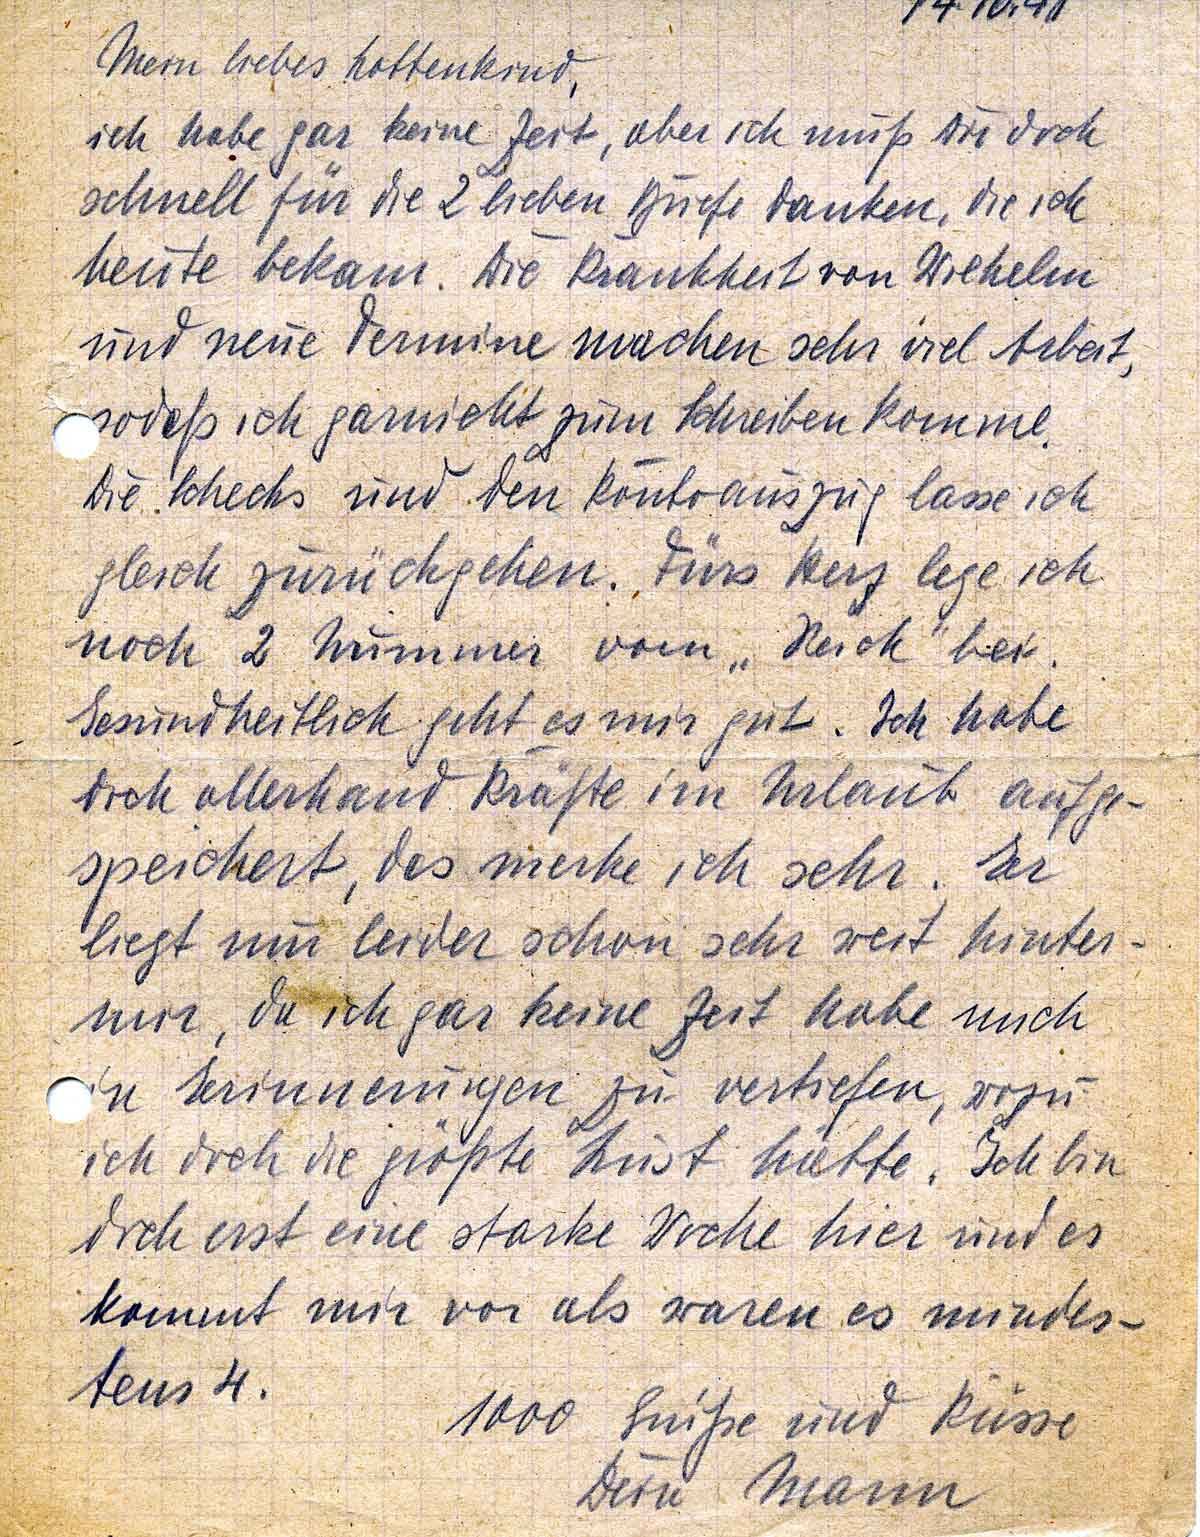 14.10.41
Mein liebes Hottenkind,
ich habe gar keine Zeit, aber ich muß Dir doch
schnell für die 2 lieben Briefe danken, die ich
heute bekam. Die Krankheit von Wilhelm
und neue Termine machen sehr viel Arbeit,
sodaß ich garnicht zum Schreiben komme.
Die Schecks und den Kontoauszug lasse ich
gleich zurückgehen. Fürs Herz lege ich
noch 2 Nummer vom „Reich" bei.
Gesundheitlich geht es mir gut. Ich habe
doch allerhand Kräfte im Urlaub aufge-
speichert, das merke ich sehr. Er
liegt nun leider schon sehr weit hinter-
mir, da ich gar keine Zeit habe mich
in Erinnerungen zu vertiefen, wozu
ich doch die größte Lust hätte. Ich bin
doch erst eine starke Woche hier und es
kommt mir vor als waren es mindes-
tens 4.
1000 Grüße und Küsse
Dein Mann